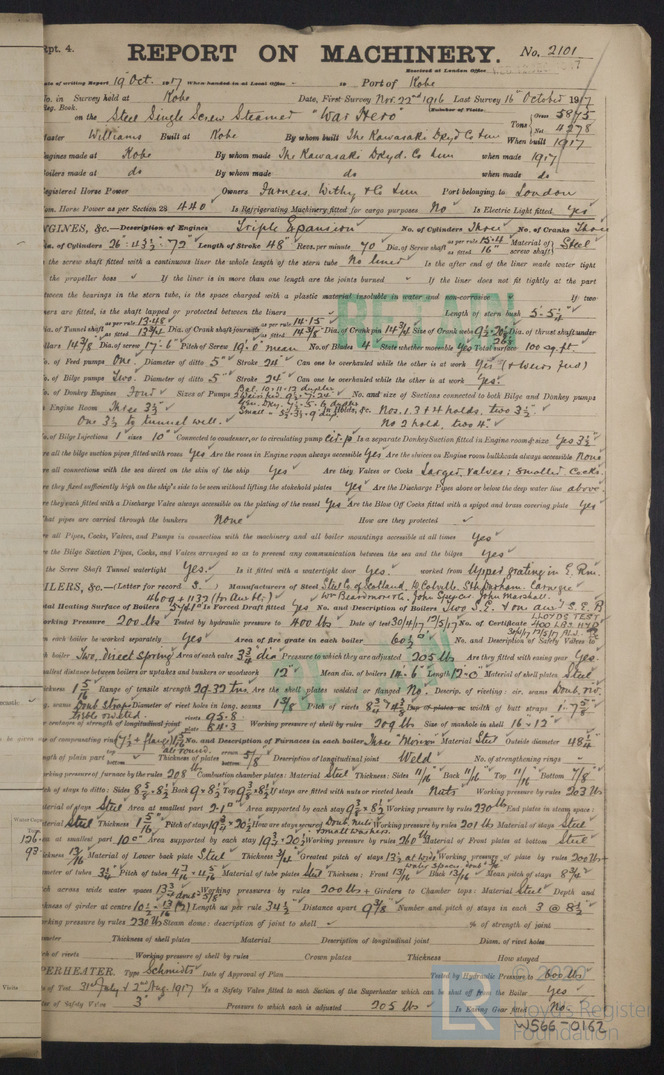 Rpt. 4.
REPORT ON MACHINERY.
No. 2101
Received at London Office
Date of writing Report 19 Oct. 1917 When handed in at Local Office
Port of Kobe
No. in Survey held at Kobe Date, First Survey Nov. 22nd 1916 Last Survey 16th October 1917
Reg. Book.
(Number of Visits
on the Steel Single Screw Steamer "War Hero"
Tons Gross 5875
Net 4278
Master Williams Built at Kobe By whom built The Kawasaki Dkyd. Co Lim When built 1917
Engines made at Kobe By whom made The Kawasaki Dkyd. Co Lim when made 1917
Boilers made at do By whom made do when made do
Registered Horse Power Owners Furness, Withy & Co Lim Port belonging to London
Nom. Horse Power as per Section 28 440 Is Refrigerating Machinery fitted for cargo purposes No Is Electric Light fitted Yes
ENGINES, &c.—Description of Engines Triple Expansion No. of Cylinders Three No. of Cranks Three
Dia. of Cylinders 26" 43½" 72" Length of Stroke 48" Revs. per minute 70 Dia. of Screw shaft as per rule 15.4 as fitted 16" Material of screw shaft Steel
Is the screw shaft fitted with a continuous liner the whole length of the stern tube No liner Is the after end of the liner made water tight
in the propeller boss If the liner is in more than one length are the joints burned If the liner does not fit tightly at the part
between the bearings in the stern tube, is the space charged with a plastic material insoluble in water and non-corrosive If two
liners are fitted, is the shaft lapped or protected between the liners Length of stern bush 5'-5¼"
Dia. of Tunnel shaft as per rule 13.48 as fitted 13¾ Dia. of Crank shaft journals as per rule 14.15 as fitted 14⅜ Dia. of Crank pin 14¾ Size of Crank webs Dia. of thrust shaft under
collars 14⅜ Dia. of screw 17'-6" Pitch of Screw 19'-0" mean No. of Blades 4 State whether moveable Yes Total surface 100 sq. ft.
No. of Feed pumps One Diameter of ditto 5" Stroke 24" Can one be overhauled while the other is at work Yes (& Weirs feed)
No. of Bilge pumps Two Diameter of ditto 5" Stroke 24" Can one be overhauled while the other is at work Yes
No. of Donkey Engines Four Sizes of Pumps No. and size of Suctions connected to both Bilge and Donkey pumps
In Engine Room Three 3½" In Holds, &c. Nos. 1, 3 & 4 holds, two 3½"
One 3½ to tunnel well. No 2 hold, two 4"
No. of Bilge Injections 1 sizes 10" Connected to condenser, or to circulating pump Cir. p. Is a separate Donkey Suction fitted in Engine room & size Yes 3½"
Are all the bilge suction pipes fitted with roses Yes Are the roses in Engine room always accessible Yes Are the sluices on Engine room bulkheads always accessible None
Are all connections with the sea direct on the skin of the ship Yes Are they Valves or Cocks Larger, Valves; Smaller Cocks.
Are they fixed sufficiently high on the ship's side to be seen without lifting the stokehold plates Yes Are the Discharge Pipes above or below the deep water line above
Are they each fitted with a Discharge Valve always accessible on the plating of the vessel Yes Are the Blow Off Cocks fitted with a spigot and brass covering plate Yes
What pipes are carried through the bunkers None How are they protected
Are all Pipes, Cocks, Valves, and Pumps in connection with the machinery and all boiler mountings accessible at all times Yes
Are the Bilge Suction Pipes, Cocks, and Valves arranged so as to prevent any communication between the sea and the bilges Yes
Is the Screw Shaft Tunnel watertight Yes. Is it fitted with a watertight door Yes. worked from Upper grating in E. Rm.
BOILERS, &c.—(Letter for record S.) Manufacturers of Steel Steel Co of Scotland, D. Colville, Sth Durham, Carnegie
Wm Beardmore & Co, John Spencer, John Marshall.
Total Heating Surface of Boilers Is Forced Draft fitted Yes No. and Description of Boilers Two S.E. & one aux S.E. B
LLOYDS TEST
400 LBS HYD
Working Pressure 200 lbs Tested by hydraulic pressure to 400 lbs Date of test 30/4/17 17/5/17 No. of Certificate
Can each boiler be worked separately Yes Area of fire grate in each boiler 60½ No. and Description of Safety Valves to
each boiler Two, direct Spring Area of each valve 3¾ dia Pressure to which they are adjusted 205 lbs Are they fitted with easing gear Yes.
Smallest distance between boilers or uptakes and bunkers or woodwork 12" Mean dia. of boilers 14'-6" Length 12'-0" Material of shell plates Steel
Thickness 1 5/16 Range of tensile strength 29-32 tns Are the shell plates welded or flanged No Descrip. of riveting: cir. seams Doub. riv.
long. seams Doub Strap treble riveted Diameter of rivet holes in long. seams 1⅜ Pitch of rivets width of butt straps
Percentages of strength of longitudinal joint rivets 95.8 plate 84.3 Working pressure of shell by rules 209 lbs Size of manhole in shell 16" × 12"
Size of compensating ring No. and Description of Furnaces in each boiler Three "Morison" Material Steel Outside diameter 48¼"
Length of plain part top bottom Thickness of plates crown bottom ⅝ Description of longitudinal joint Weld No. of strengthening rings
Working pressure of furnace by the rules 208 Combustion chamber plates: Material Steel Thickness: Sides 11/16 Back 11/16 Top 11/16 Bottom 7/8"
Pitch of stays to ditto: Sides Back Top If stays are fitted with nuts or riveted heads Nuts Working pressure by rules 203 lbs
Material of stays Steel Area at smallest part 2.1 Area supported by each stay Working pressure by rules 230 lbs End plates in steam space:
Material Steel Thickness 1 5/16 Pitch of stays How are stays secured Doub. Nuts & small washers Working pressure by rules 201 lbs Material of stays Steel
Area at smallest part Area supported by each stay Working pressure by rules 260 lbs Material of Front plates at bottom Steel
Thickness 13/16 Material of Lower back plate Steel Thickness ¾ Greatest pitch of stays 13½ at wide water spaces Working pressure of plate by rules 200 lbs
Diameter of tubes 3¼ Pitch of tubes Material of tube plates Steel Thickness: Front Back 13/16 Mean pitch of stays
Pitch across wide water spaces 13¾ Working pressures by rules 200 lbs + Girders to Chamber tops: Material Steel Depth and
thickness of girder at centre Length as per rule 34½ Distance apart 9⅜ Number and pitch of stays in each 3 @ 8½
Working pressure by rules 230 lbs Steam dome: description of joint to shell % of strength of joint
Diameter Thickness of shell plates Material Description of longitudinal joint Diam. of rivet holes
Pitch of rivets Working pressure of shell by rules Crown plates Thickness How stayed
SUPERHEATER. Type Schmidts Date of Approval of Plan Tested by Hydraulic Pressure to 600 lbs
Date of Test 31st July & 2nd Aug. 1917 Is a Safety Valve fitted to each Section of the Superheater which can be shut off from the Boiler Yes
Diameter of Safety Valve 3" Pressure to which each is adjusted 205 lbs Is Easing Gear fitted No.
RETAIN
RETAIN
© 2020
LR
Lloyd's Register
Foundation
W566-0162